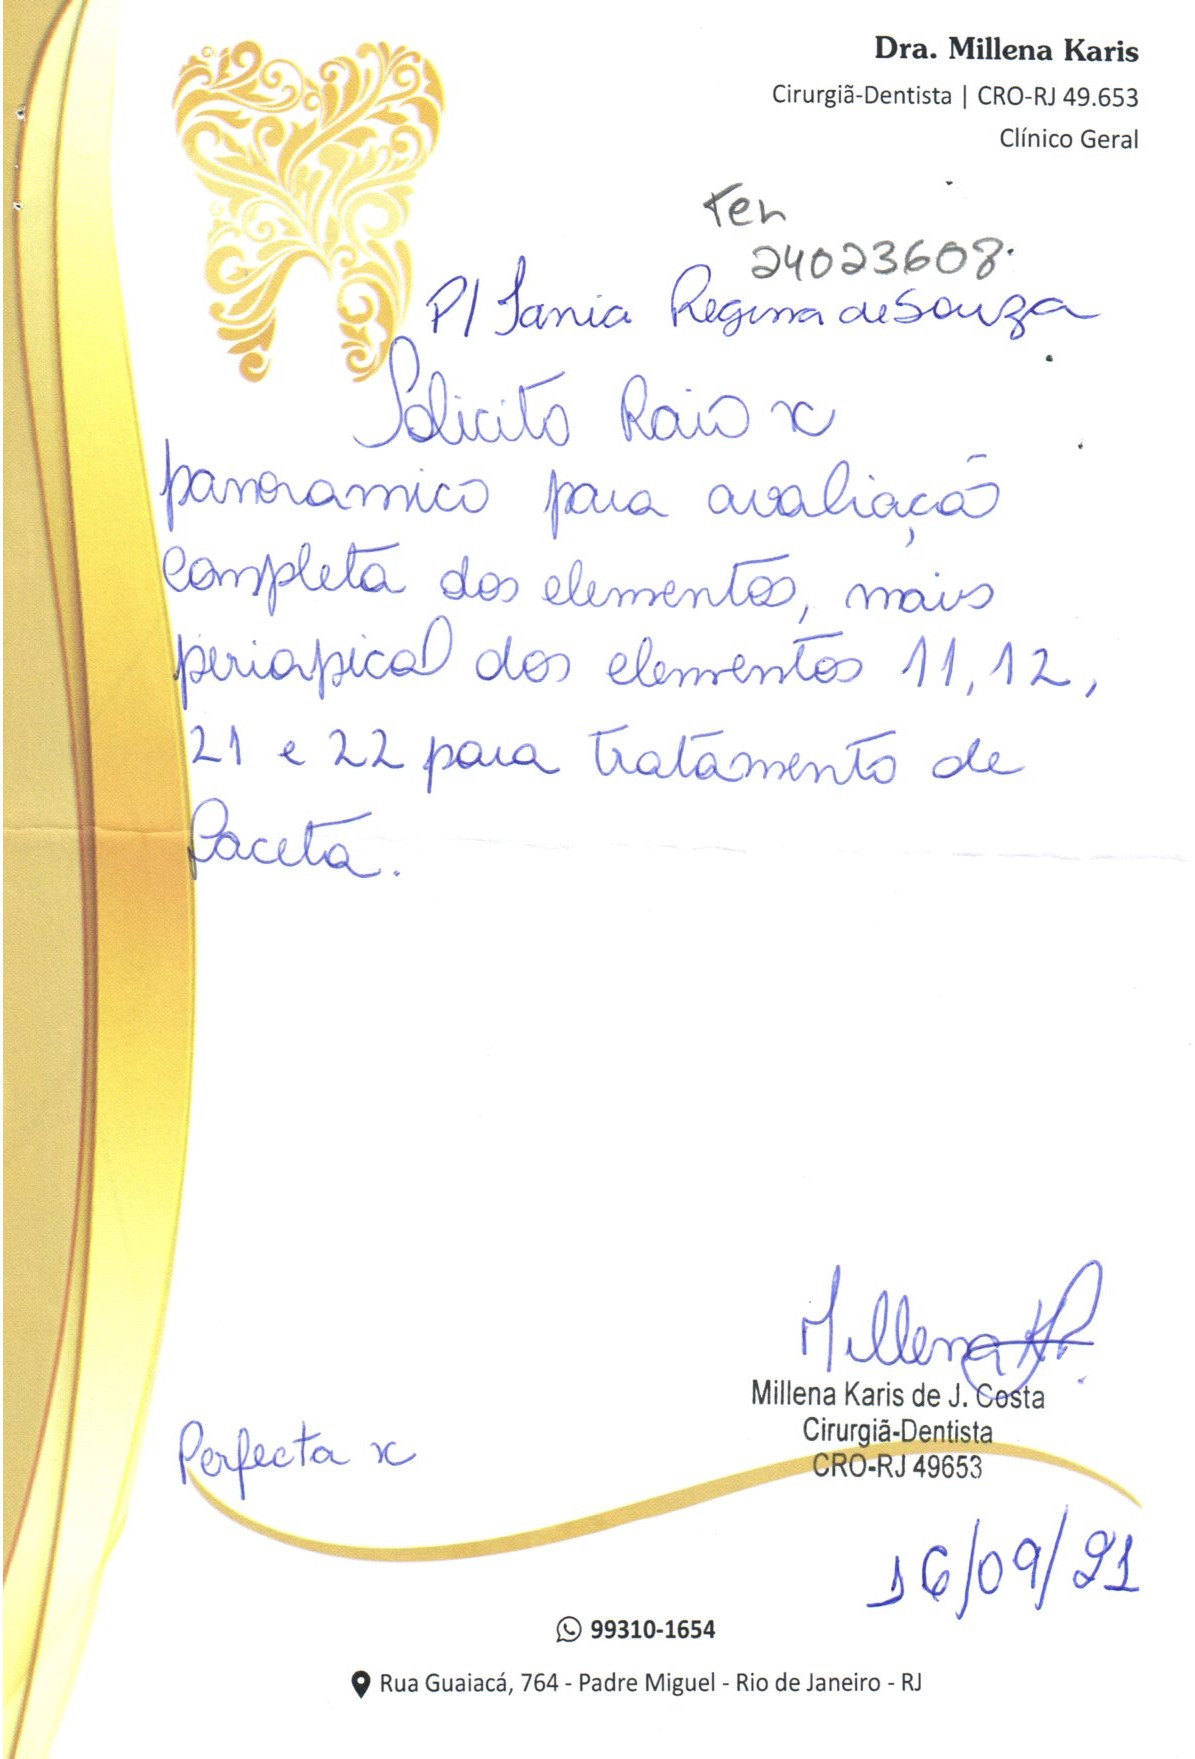 Dra. Millena Karis
Cirurgiã-Dentista | CRO-RJ 49.653
Clínico Geral
24023608
P/ Tania Regina de Souza
Solicito Raio x
panoramico para avaliação
completa dos elementos, mais
periapical dos elementos 11, 12,
21 e 22 para tratamento de
Faceta.
Millena
Millena Karis de J. Costa
Cirurgiã-Dentista
CRO-RJ 49653
Perfecta x
16/09/21
99310-1654
Rua Guaiacá, 764 - Padre Miguel - Rio de Janeiro - RJ